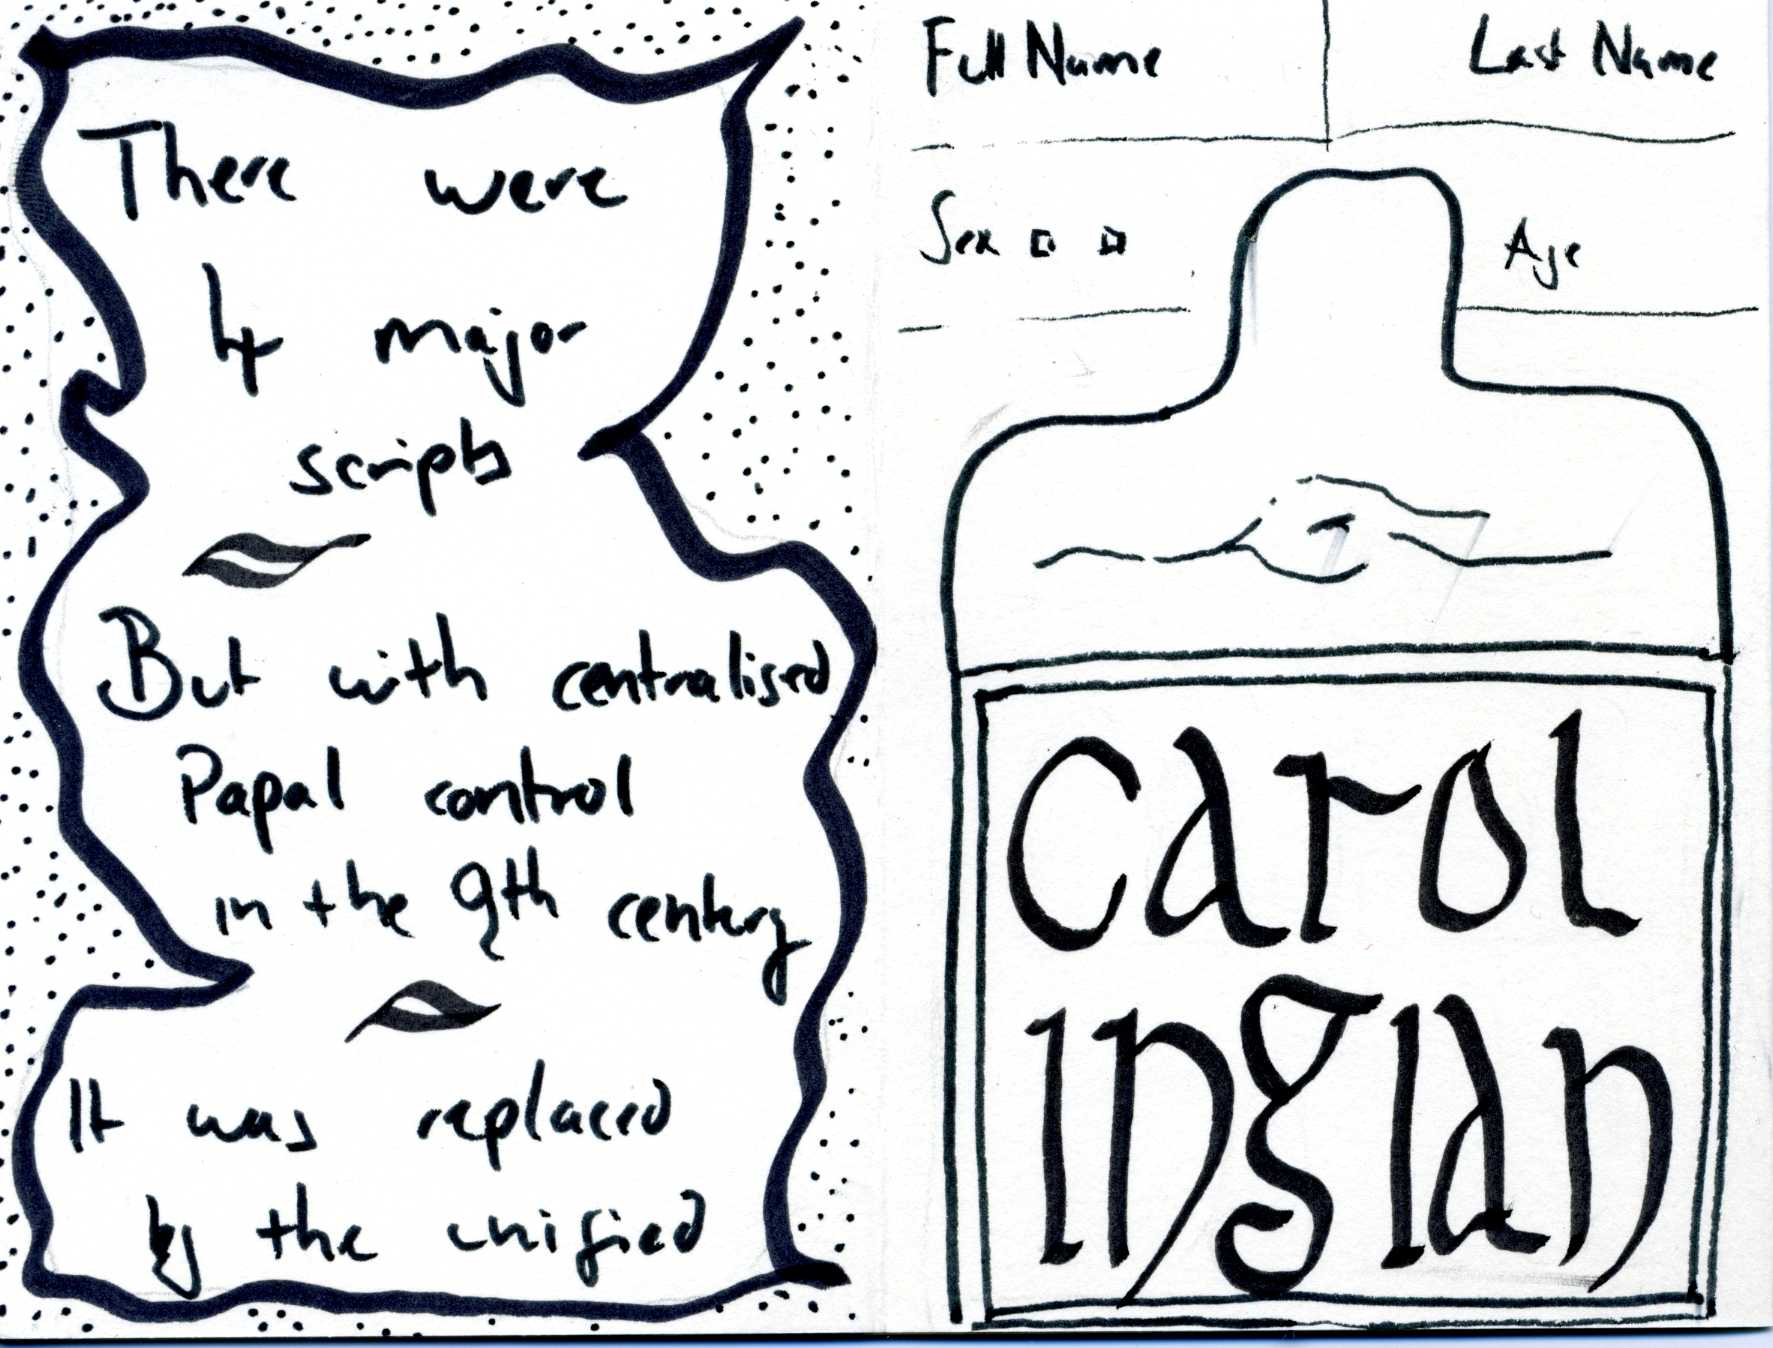 There were
4 major
scripts
But with centralised
Papal control
in the 9th century
It was replaced
by the unified
Full Name
Last Name
Sex
Age
carol
ingian